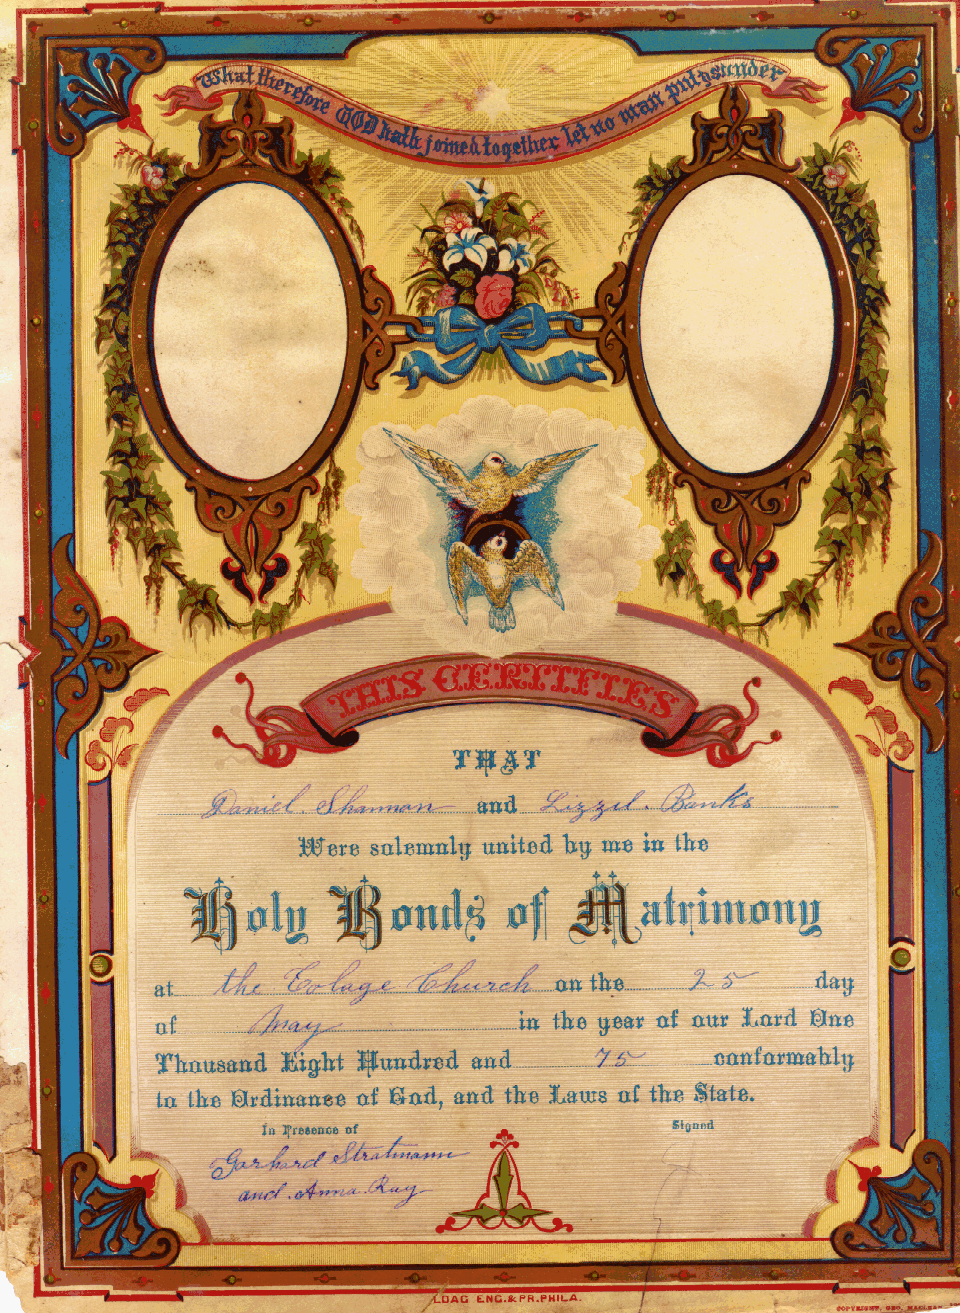 What therefore GOD hath joined together let no man put asunder
THIS CERTIFIES
THAT
Daniel. Shannon and Lizzel. Banks
Were solemnly united by me in the
Holy Bonds of Matrimony
at the Colage Church on the 25 day
of May in the year of our Lord One
Thousand Eight Hundred and 75 conformably
to the Ordinance of God, and the Laws of the State.
In Presence of Signed
Garhard Stratmann
and. Anna. Ray
LOAG ENG. & PR. PHILA.
COPYRIGHT, GEO.